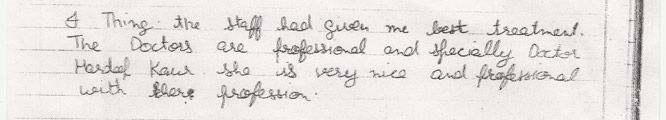 I Thing the staff had given me best treatment.
The Doctors are professional and specially Doctor
Hardeef Kaur she is very nice and professional
with there profession.